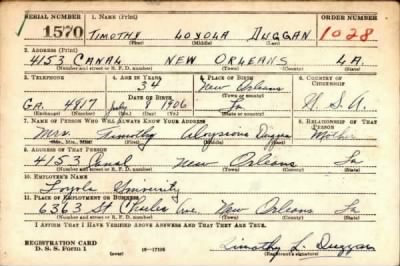 SERIAL NUMBER 1. NAME (Print) ORDER NUMBER
1570 TIMOTHY LOYOLA DUGGAN 1028
(First) (Middle) (Last)
2. ADDRESS (Print)
4153 CANAL NEW ORLEANS LA.
(Number and street or R. F. D. number) (Town) (County) (State)
3. TELEPHONE 4. AGE IN YEARS 5. PLACE OF BIRTH 6. COUNTRY OF CITIZENSHIP
34 New Orleans
DATE OF BIRTH (Town or county)
GA. 4817 July 8 1906 La U.S.A.
(Exchange) (Number) (Mo.) (Day) (Yr.) (State or country)
7. NAME OF PERSON WHO WILL ALWAYS KNOW YOUR ADDRESS 8. RELATIONSHIP OF THAT PERSON
Mrs. Timothy Aloysious Duggan Mother
(Mr., Mrs., Miss) (First) (Middle) (Last)
9. ADDRESS OF THAT PERSON
4153 Canal New Orleans La
(Number and street or R. F. D. number) (Town) (County) (State)
10. EMPLOYER'S NAME
Loyola University
11. PLACE OF EMPLOYMENT OR BUSINESS
6363 St Charles Ave. New Orleans La
(Number and street or R. F. D. number) (Town) (County) (State)
I AFFIRM THAT I HAVE VERIFIED ABOVE ANSWERS AND THAT THEY ARE TRUE.
REGISTRATION CARD
D. S. S. Form 1 (over) 16—17105 Timothy L. Duggan
(Registrant's signature)